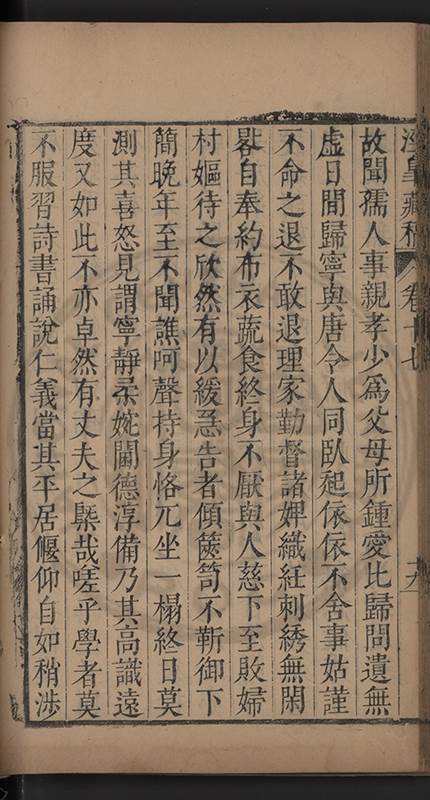 涇皋藏稿 卷十七 十九
故聞孺人事親孝少為父母所鍾愛比歸問遺無
虛日間歸寧與唐令人同臥起依依不舍事姑謹
不命之退不敢退理家勤督諸婢織紝刺綉無閑
晷自奉約布衣蔬食終身不厭與人慈下至敗婦
村嫗待之欣然有以緩急告者傾篋笥不靳御下
簡晚年至不聞譙呵聲持身恪兀坐一榻終日莫
測其喜怒見謂寧靜柔婉閫德淳備乃其高識遠
度又如此不亦卓然有丈夫之槩哉嗟乎學者莫
不服習詩書誦說仁義當其平居偃仰自如稍涉